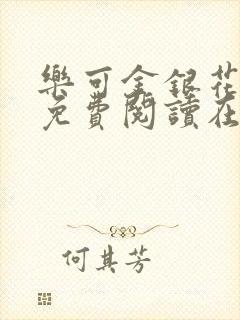 樂可金銀花
免費閱讀在
何其芳